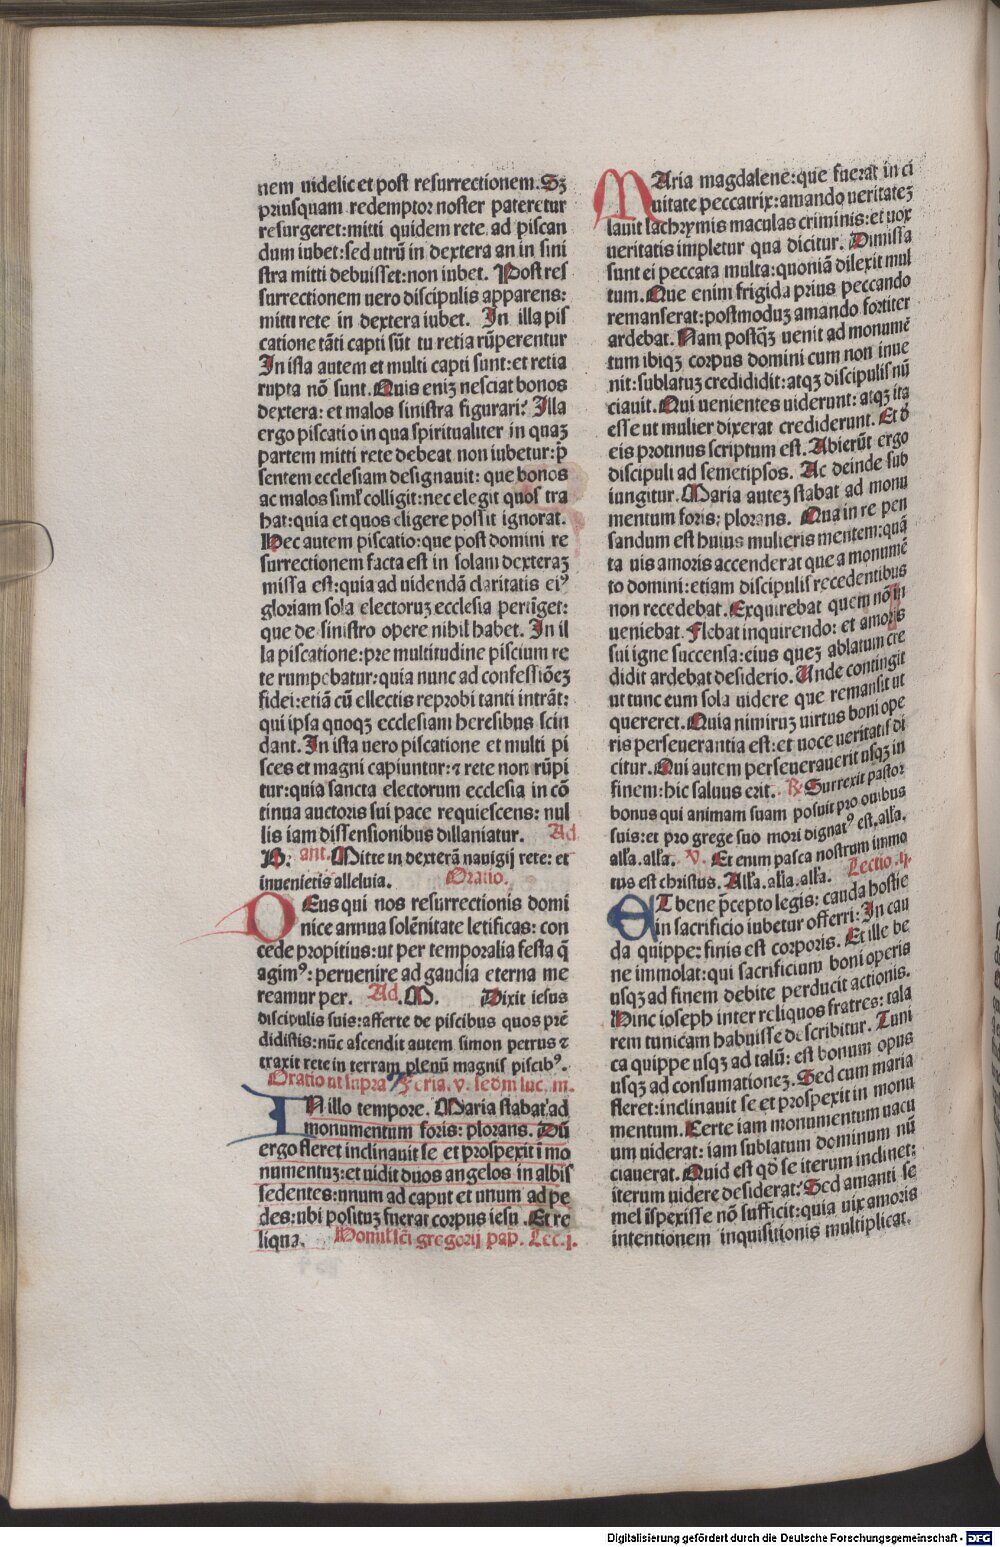 nem uidelicet post resurrectionem. Sꝫ
priusquam redemptor noster pateretur
resurgeret: mitti quidem rete ad piscan
dum iubet: sed utrū in dextera an in sini
stra mitti debuisset: non iubet. Post res
surrectionem uero discipulis apparens:
mitti rete in dextera iubet. In illa pis
catione tāti capti sūt tu retia rūperentur
In ista autem et multi capti sunt: et retia
rupta nō sunt. Quis eniꝫ nesciat bonos
dextera: et malos sinistra figurari? Illa
ergo piscatio in qua spiritualiter in quaꝫ
partem mitti rete debeat non iubetur: p̄
sentem ecclesiam designauit: que bonos
ac malos siml̄ colligit: nec elegit quos tra
hat: quia et quos eligere possit ignorat.
Hec autem piscatio: que post domini re
surrectionem facta est in solam dexteraꝫ
missa est: quia ad uidendā claritatis eiꝰ
gloriam sola electoruꝫ ecclesia pertīget:
que de sinistro opere nihil habet. In il
la piscatione: pre multitudine piscium re
te rumpebatur: quia nunc ad confessiōeꝫ
fidei: etiā cū ellectis reprobi tanti intrāt:
qui ipsa quoqꝫ ecclesiam heresibus scin
dant. In ista uero piscatione et multi pi
sces et magni capiuntur: ⁊ rete non rūpi
tur: quia sancta electorum ecclesia in cō
tinua auctoris sui pace requiescens: nul
lis iam dissensionibus dillaniatur. Ad
B. ant. Mitte in dexterā nauigij rete: et
inuenietis alleluia. Oratio.
DEus qui nos resurrectionis domi
nice annua solēnitate letificas: con
cede propitius: ut per temporalia festa q̄
agimꝰ: peruenire ad gaudia eterna me
reamur per. Ad. M. Dixit iesus
discipulis suis: afferte de piscibus quos prē
didistis: nūc ascendit autem simon petrus ⁊
traxit rete in terram plenū magnis piscibꝰ.
Oratio ut supra Feria. v. scdm luc. in.
IN illo tempore. Maria stabat ad
monumentum foris: plorans. Dū
ergo fleret inclinauit se et prospexit ī mo
numentuꝫ: et uidit duos angelos in albis
sedentes: unum ad caput et unum ad pe
des: ubi posituꝫ fuerat corpus iesu. Et re
liqua. Homil. sci gregorij pap. Lec. j.
MAria magdalene: que fuerat in ci
uitate peccatrix: amando ueritateꝫ
lauit lachrymis maculas criminis: et uox
ueritatis impletur qua dicitur. Dimissa
sunt ei peccata multa: quoniā dilexit mul
tum. Que enim frigida prius peccando
remanserat: postmoduꝫ amando fortiter
ardebat. Nam postqꝫ uenit ad monumē
tum ibiqꝫ corpus domini cum non inue
nit: sublatuꝫ credididit: atqꝫ discipulis nū
ciauit. Qui uenientes uiderunt: atqꝫ ita
esse ut mulier dixerat crediderunt. Et d̄
eis protinus scriptum est. Abierūt ergo
discipuli ad semetipsos. Ac deinde sub
iungitur. Maria auteꝫ stabat ad monu
mentum foris: plorans. Qua in re pen
sandum est huius mulieris mentem: quā
ta uis amoris accenderat que a monumē
to domini: etiam discipulis recedentibus
non recedebat. Exquirebat quem nō in
ueniebat. Flebat inquirendo: et amoris
sui igne succensa: eius queꝫ ablatum cre
didit ardebat desiderio. Unde contingit
ut tunc eum sola uidere que remansit ut
quereret. Quia nimiruꝫ uirtus boni ope
ris perseuerantia est: et uoce ueritatis di
citur. Qui autem perseuerauerit usqꝫ in
finem: hic saluus erit. ℟ Surrexit pastor
bonus qui animam suam posuit pro ouibus
suis: et pro grege suo mori dignatꝰ est. alla.
alla. alla. V. Et enim pasca nostrum immo
tus est christus. Alla. alla. alla. Lectio. ij.
ET bene p̄cepto legis: cauda hostie
in sacrificio iubetur offerri: In cau
da quippe: finis est corporis. Et ille be
ne immolat: qui sacrificium boni operis
usqꝫ ad finem debite perducit actionis.
Hinc ioseph inter reliquos fratres: tala
rem tunicam habuisse describitur. Tuni
ca quippe usqꝫ ad talū: est bonum opus
usqꝫ ad consumationeꝫ. Sed cum maria
fleret: inclinauit se et prospexit in monu
mentum. Certe iam monumentum uacu
um uiderat: iam sublatum dominum nū
ciauerat. Quid est qd̄ se iterum inclinet:
iterum uidere desiderat? Sed amanti se
mel īspexisse nō sufficit: quia uix amoris
intentionem inquisitionis multiplicat.
Digitalisierung gefördert durch die Deutsche Forschungsgemeinschaft - DFG